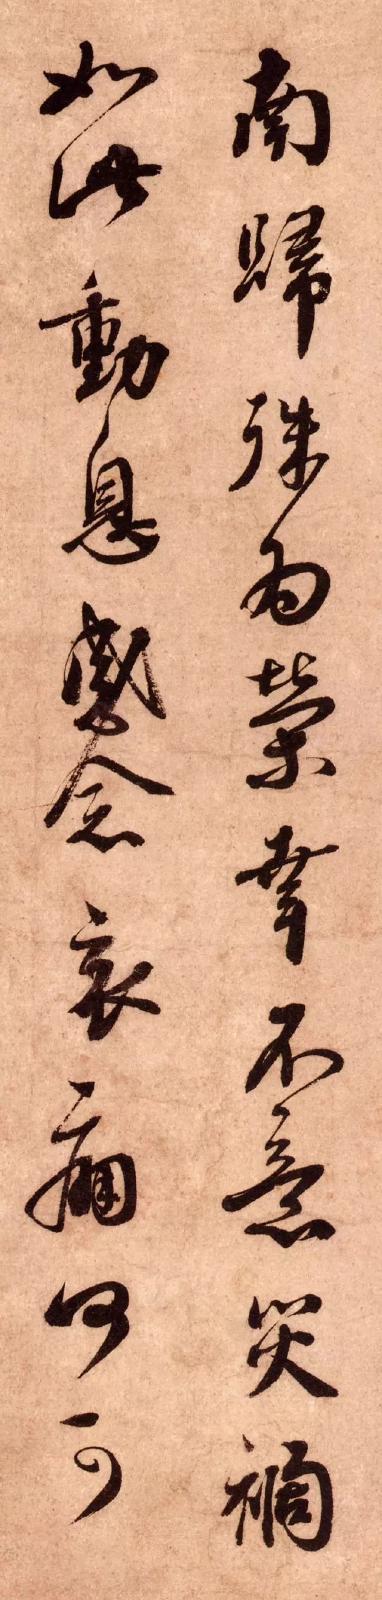 南歸殊為榮幸不意災禍
如此動息感念哀痛何可